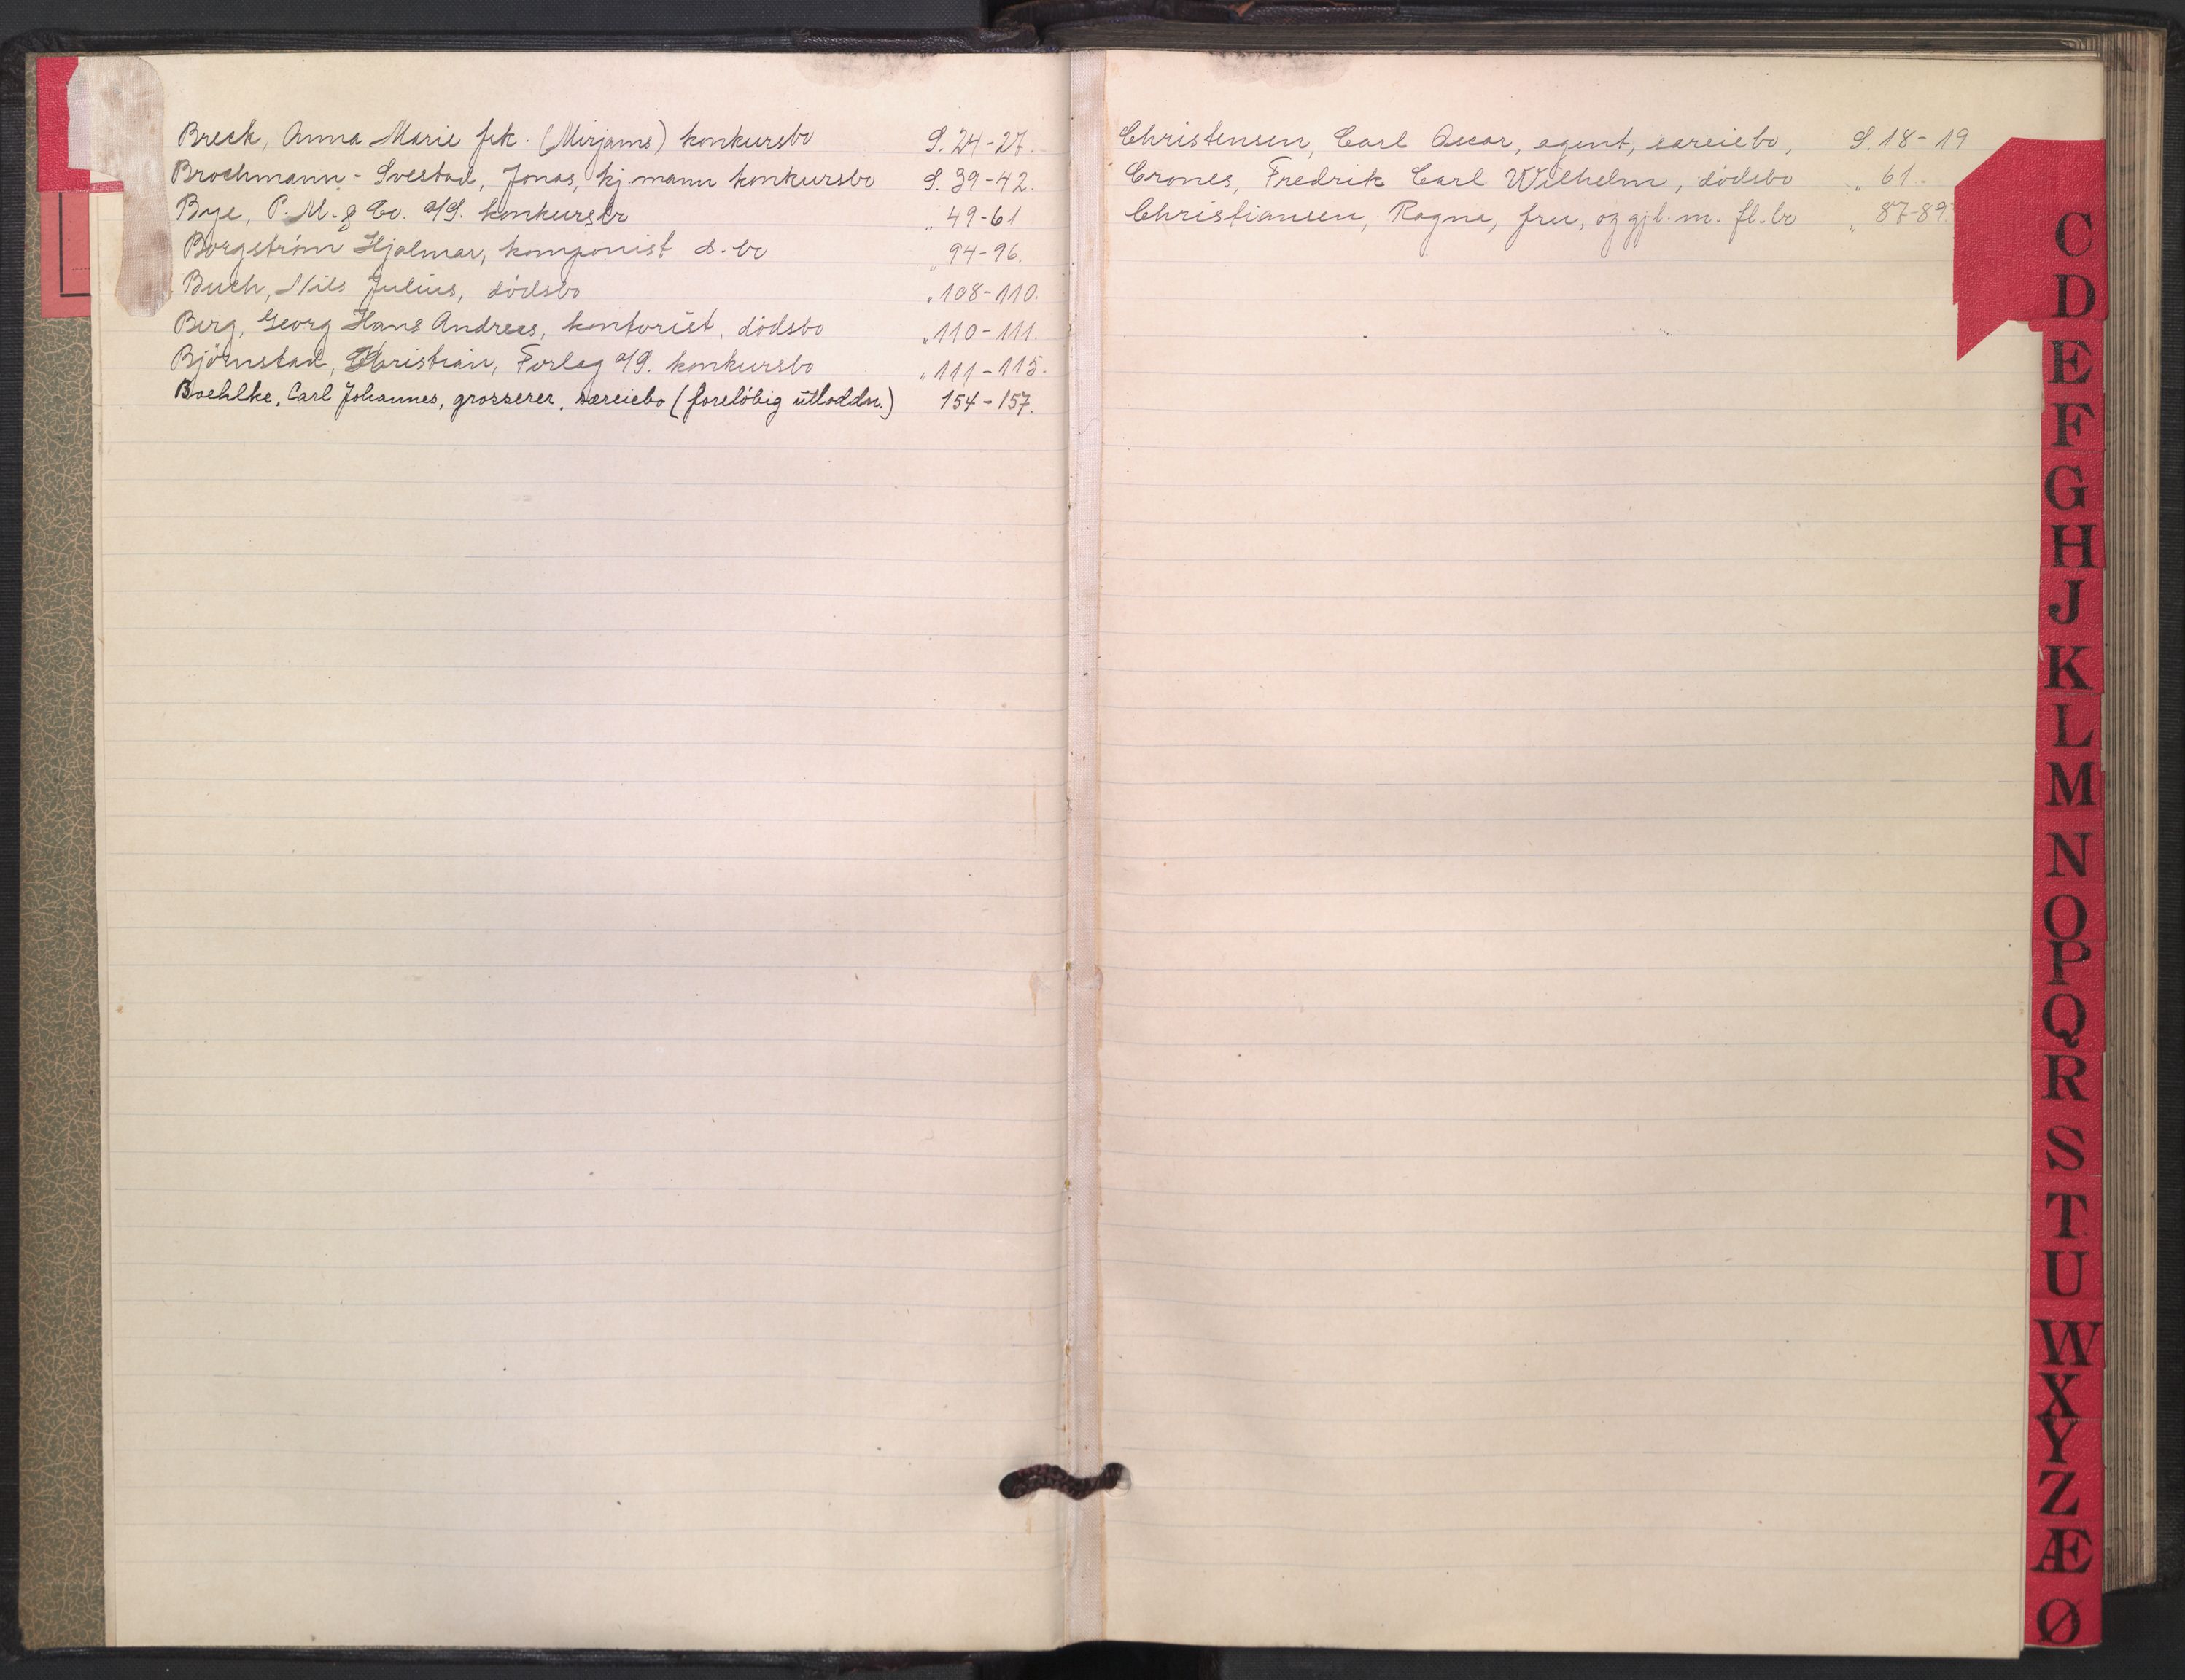 Breck, Anna Marie frk. (Mirjams) konkursbo S. 24-27.
Brochmann-Svestad, Jonas, kj.mann konkursbo S. 39-42.
Bye, P. M. & Co. A/S. konkursbo " 49-61
Borgström Hjalmar, komponist d. bo " 94-96.
Buch, Nils Julius, dödsbo " 108-110.
Berg, Georg Hans Andreas, kontorist, dödsbo " 110-111.
Björnstad, Christian, Forlag A/S. konkursbo " 111-115.
Boehlke, Carl Johannes, grosserer, særeiebo (forelöbig utloddn.) 154-157.
Christensen, Carl Oscar, agent, særeiebo, S. 18-19
Crones, Fredrik Carl Wilhelm, dödsbo " 61.
Christiansen, Ragna, fru, og gjl. m. fl. bo " 87-89.
C
D
E
F
G
H
J
K
L
M
N
O
P
Q
R
S
T
U
W
X
Y
Z
Æ
Ø